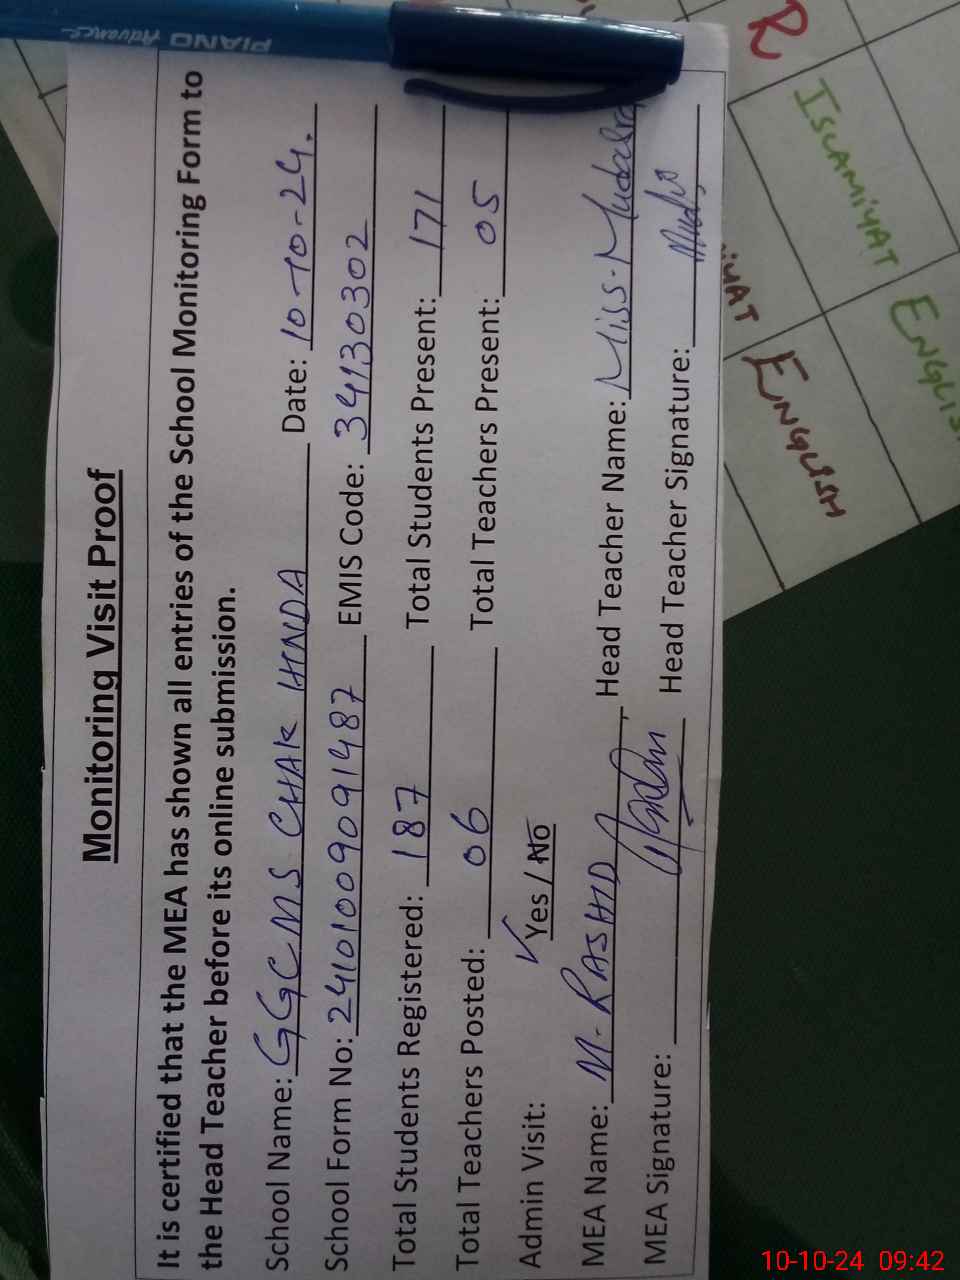 PIANO Advance
Monitoring Visit Proof
It is certified that the MEA has shown all entries of the School Monitoring Form to
the Head Teacher before its online submission.
School Name: GGCMS CHAK HINDA Date: 10-10-24.
School Form No: 24101009091487 EMIS Code: 34130302
Total Students Registered: 187 Total Students Present: 171
Total Teachers Posted: 06 Total Teachers Present: 05
Admin Visit: Yes / No
MEA Name: M. RASHID Head Teacher Name: Miss. Mudasra
MEA Signature: Head Teacher Signature:
R
ISLAMIYAT
ENGLISH
ENGLISH
10-10-24 09:42